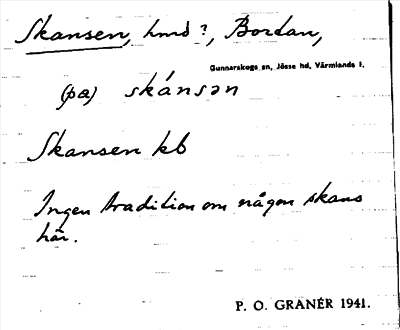 Skansen, hmd?, Bordan,
Gunnarskogs sn, Jösse hd, Värmlands l.
(pα) skánsən
Skansen kb
Ingen tradition om någon skans
här.
P. O. GRANÉR 1941.